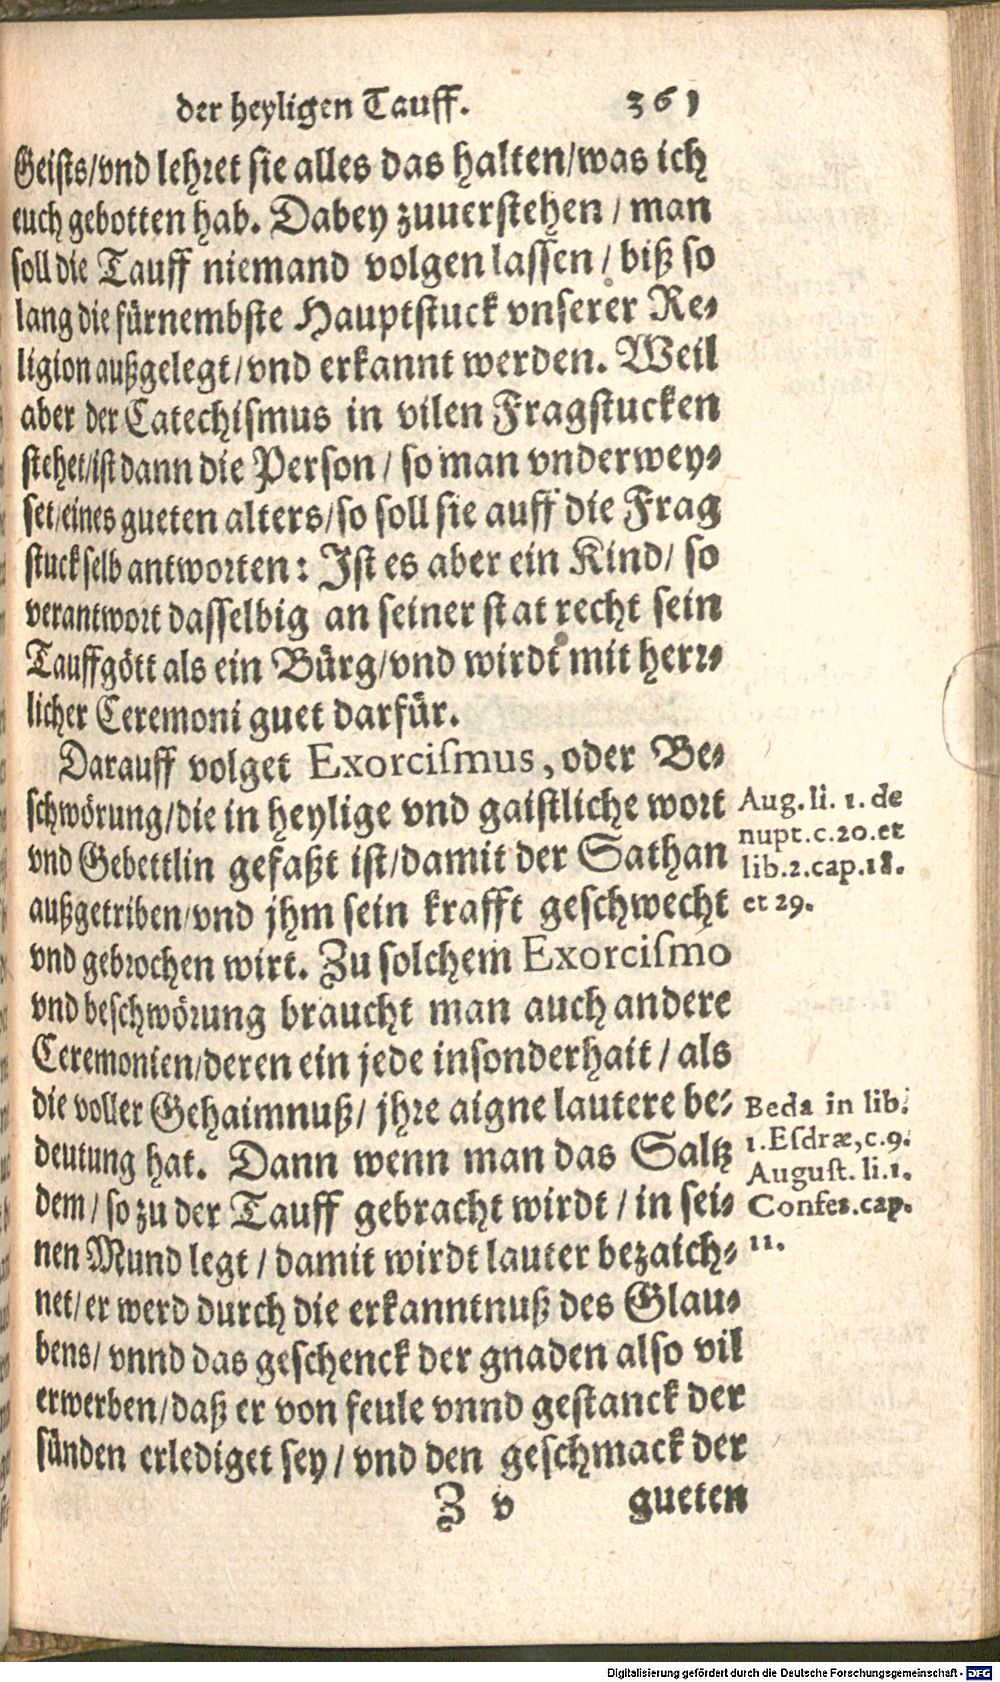 der heyligen Tauff. 361
Geists/vnd lehret sie alles das halten/was ich
euch gebotten hab. Dabey zuuerstehen / man
soll die Tauff niemand volgen lassen / biß so
lang die fürnembste Hauptstuck vnserer Re-
ligion außgelegt/vnd erkannt werden. Weil
aber der Catechismus in vilen Fragstucken
stehet/ist dann die Person / so man vnderwey-
set/eines gueten alters/so soll sie auff die Frag
stuck selb antworten: Ist es aber ein Kind/ so
verantwort dasselbig an seiner stat recht sein
Tauffgött als ein Bürg/vnd wirdt mit herr-
licher Ceremoni guet darfür.
Darauff volget Exorciſmus, oder Be-
schwörung/die in heylige vnd gaistliche wort
vnd Gebettlin gefaßt ist/damit der Sathan
außgetriben/vnd jhm sein krafft geschwecht
vnd gebrochen wirt. Zu solchem Exorciſmo
vnd beschwörung braucht man auch andere
Ceremonien/deren ein jede insonderhait / als
die voller Gehaimnuß/ jhre aigne lautere be-
deutung hat. Dann wenn man das Saltz
dem/ so zu der Tauff gebracht wirdt / in sei-
nen Mund legt / damit wirdt lauter bezaich-
net/ er werd durch die erkanntnuß des Glau-
bens/ vnnd das geschenck der gnaden also vil
erwerben/daß er von feule vnnd gestanck der
sünden erlediget sey / vnd den geschmack der
Z v gueten
Aug. li. 1. de
nupt. c. 20. et
lib. 2. cap. 18.
et 29.
Beda in lib.
1. Eſdræ, c. 9.
Auguſt. li. 1.
Confes. cap.
11.
Digitalisierung gefördert durch die Deutsche Forschungsgemeinschaft - DFG